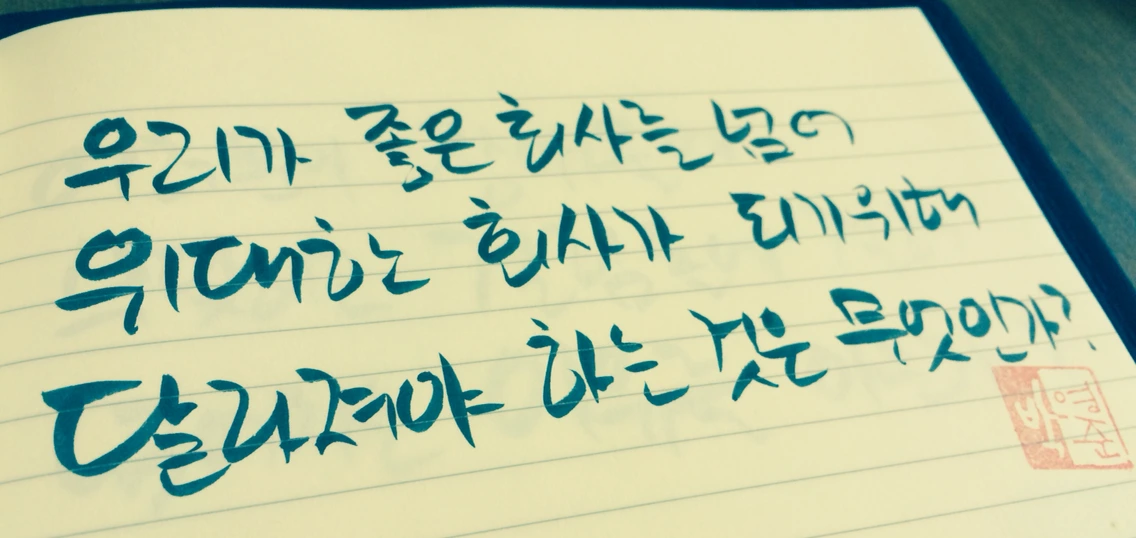 우리가 좋은 회사를 넘어
위대한 회사가 되기위해
달라져야 하는 것은 무엇인가?